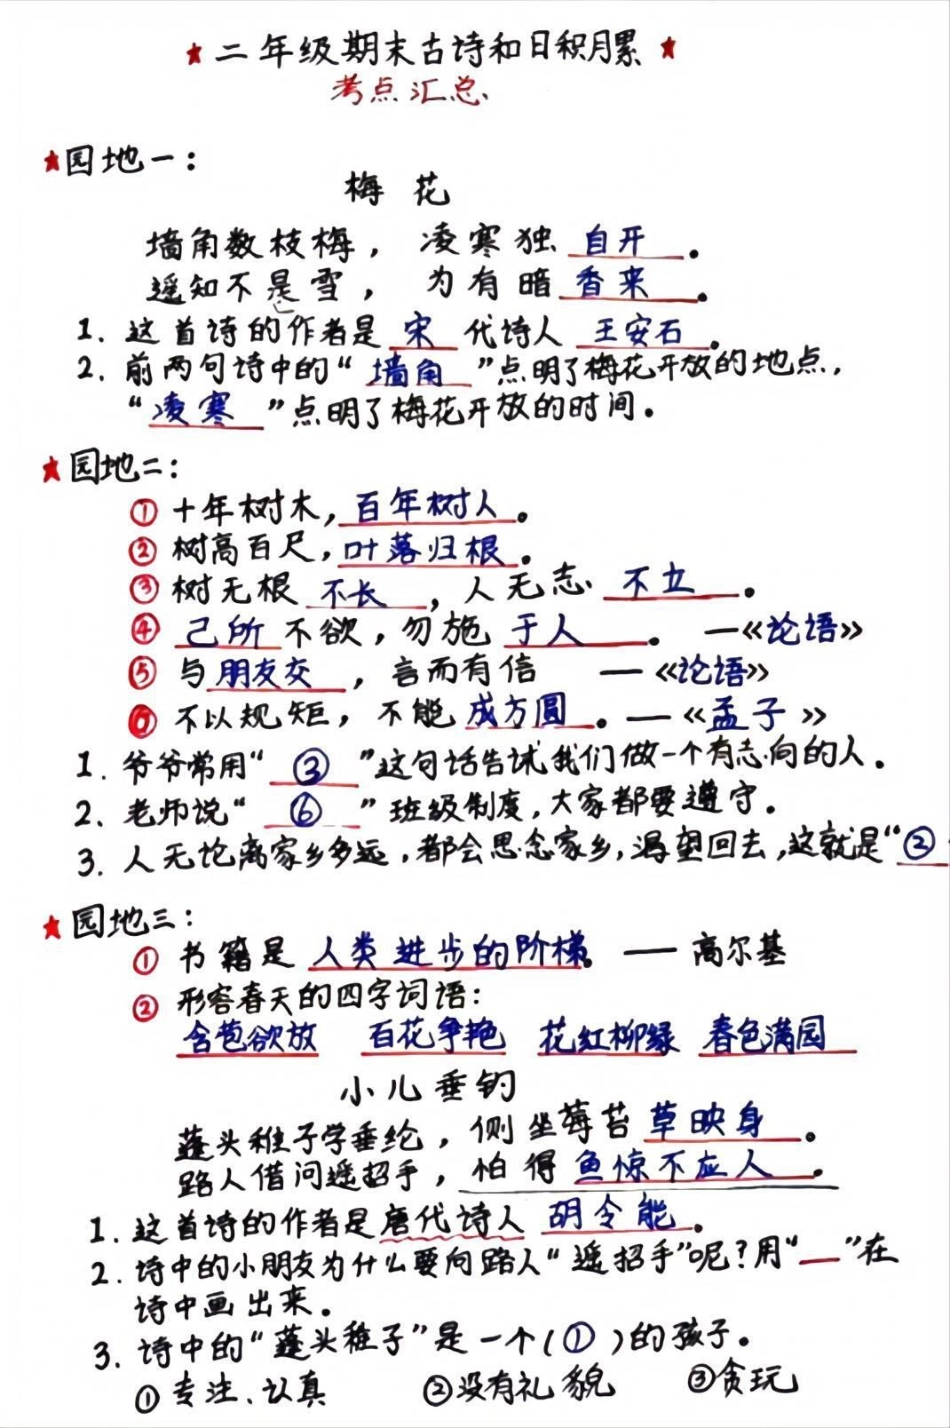 ★二年级期末古诗和日积月累★
考点汇总
★园地一：
梅花
墙角数枝梅，凌寒独自开。
遥知不是雪，为有暗香来。
1. 这首诗的作者是宋代诗人王安石。
2. 前两句诗中的“墙角”点明了梅花开放的地点，
“凌寒”点明了梅花开放的时间。
★园地二：
①十年树木，百年树人。
②树高百尺，叶落归根。
③树无根不长，人无志不立。
④己所不欲，勿施于人。—《论语》
⑤与朋友交，言而有信 —《论语》
⑥不以规矩，不能成方圆。—《孟子》
1. 爷爷常用“③”这句话告试我们做一个有志向的人。
2. 老师说“⑥”班级制度，大家都要遵守。
3. 人无论离家乡多远，都会思念家乡，渴望回去，这就是“②
★园地三：
①书籍是人类进步的阶梯。—高尔基
②形容春天的四字词语：
含苞欲放 百花争艳 花红柳绿 春色满园
小儿垂钓
蓬头稚子学垂纶，侧坐莓苔草映身。
路人借问遥招手，怕得鱼惊不应人。
1. 这首诗的作者是唐代诗人胡令能。
2. 诗中的小朋友为什么要向路人“遥招手”呢？用“—”在
诗中画出来。
3. 诗中的“蓬头稚子”是一个(①)的孩子。
①专注、认真 ②没有礼貌 ③贪玩